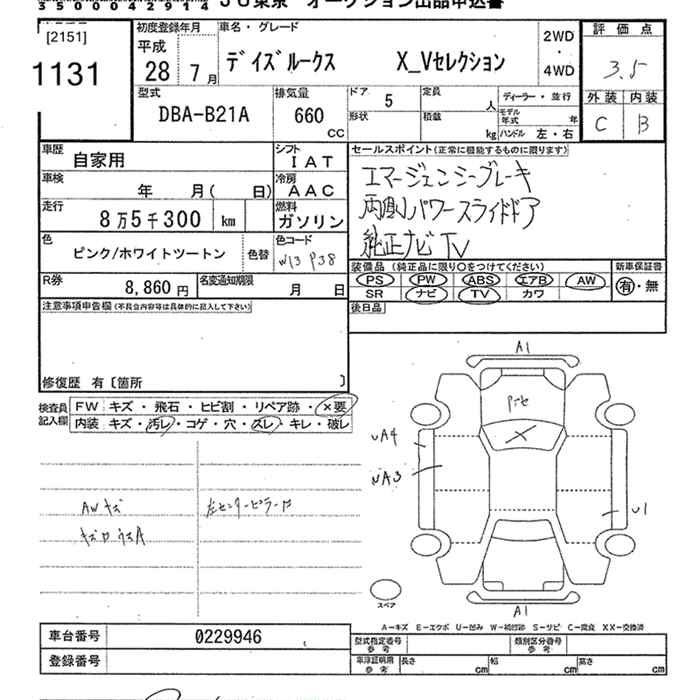 35000042914 JU東京 オークション出品申込書
[2151]
1131
初度登録年月
平成
28 年 7 月
車名・グレード
デイズルークス X_Vセレクション
2WD
・
4WD
評価点
3.5
外装 内装
C B
型式
DBA-B21A
排気量
660
CC
ドア 5
形状
定員 人
積載 kg
ディーラー・並行
モデル年式 年
ハンドル 左・右
車歴
自家用
シフト
IAT
車検
年 月( 日)
冷房
AAC
走行
8万5千300 km
燃料
ガソリン
色
ピンク/ホワイトツートン
色替
色コード
W13 P38
R券
8,860 円
名変通知期限
月 日
セールスポイント(正常に機能するものに限ります)
エマージェンシーブレーキ
両側パワースライドドア
純正ナビTV
装備品(純正品に限り○をつけてください)
PS PW ABS エアB AW
SR ナビ TV カワ
新車保証書
有・無
後日品
注意事項申告欄(不具合内容等は具体的に記入して下さい)
修復歴 有〔箇所 〕
検査員
記入欄
FW キズ・飛石・ヒビ割・リペア跡・×要
内装 キズ・汚レ・コゲ・穴・ズレ・キレ・破レ
AWキズ
左センターピラー
A1
X
UA4
U1
スペア
A1
A-キズ E-エクボ U-凹み W-補修跡 S-サビ C-腐食 XX-交換済
車台番号 0229946
登録番号
型式指定番号
参考
類別区分番号
参考
車庫証明用
参考
長さ cm
幅 cm
高さ cm